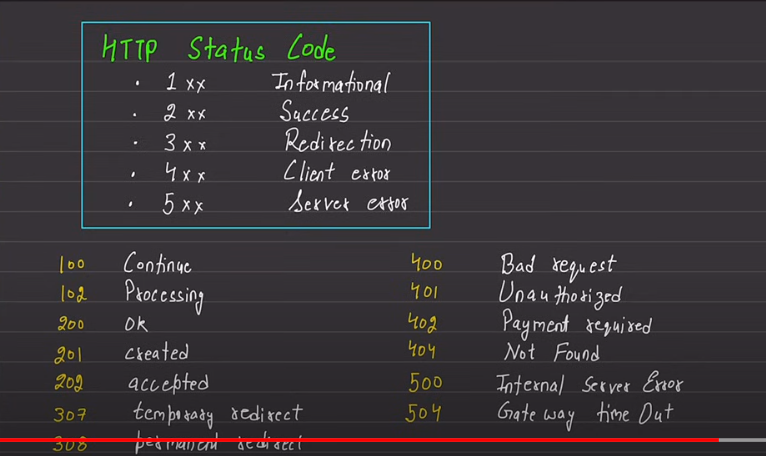 HTTP Status Code
• 1xx Informational
• 2xx Success
• 3xx Redirection
• 4xx Client error
• 5xx Server error
100 Continue
102 Processing
200 OK
201 created
202 accepted
307 temporary redirect
308 permanent redirect
400 Bad request
401 Unauthorized
402 Payment required
404 Not Found
500 Internal Server Error
504 Gate way time Out